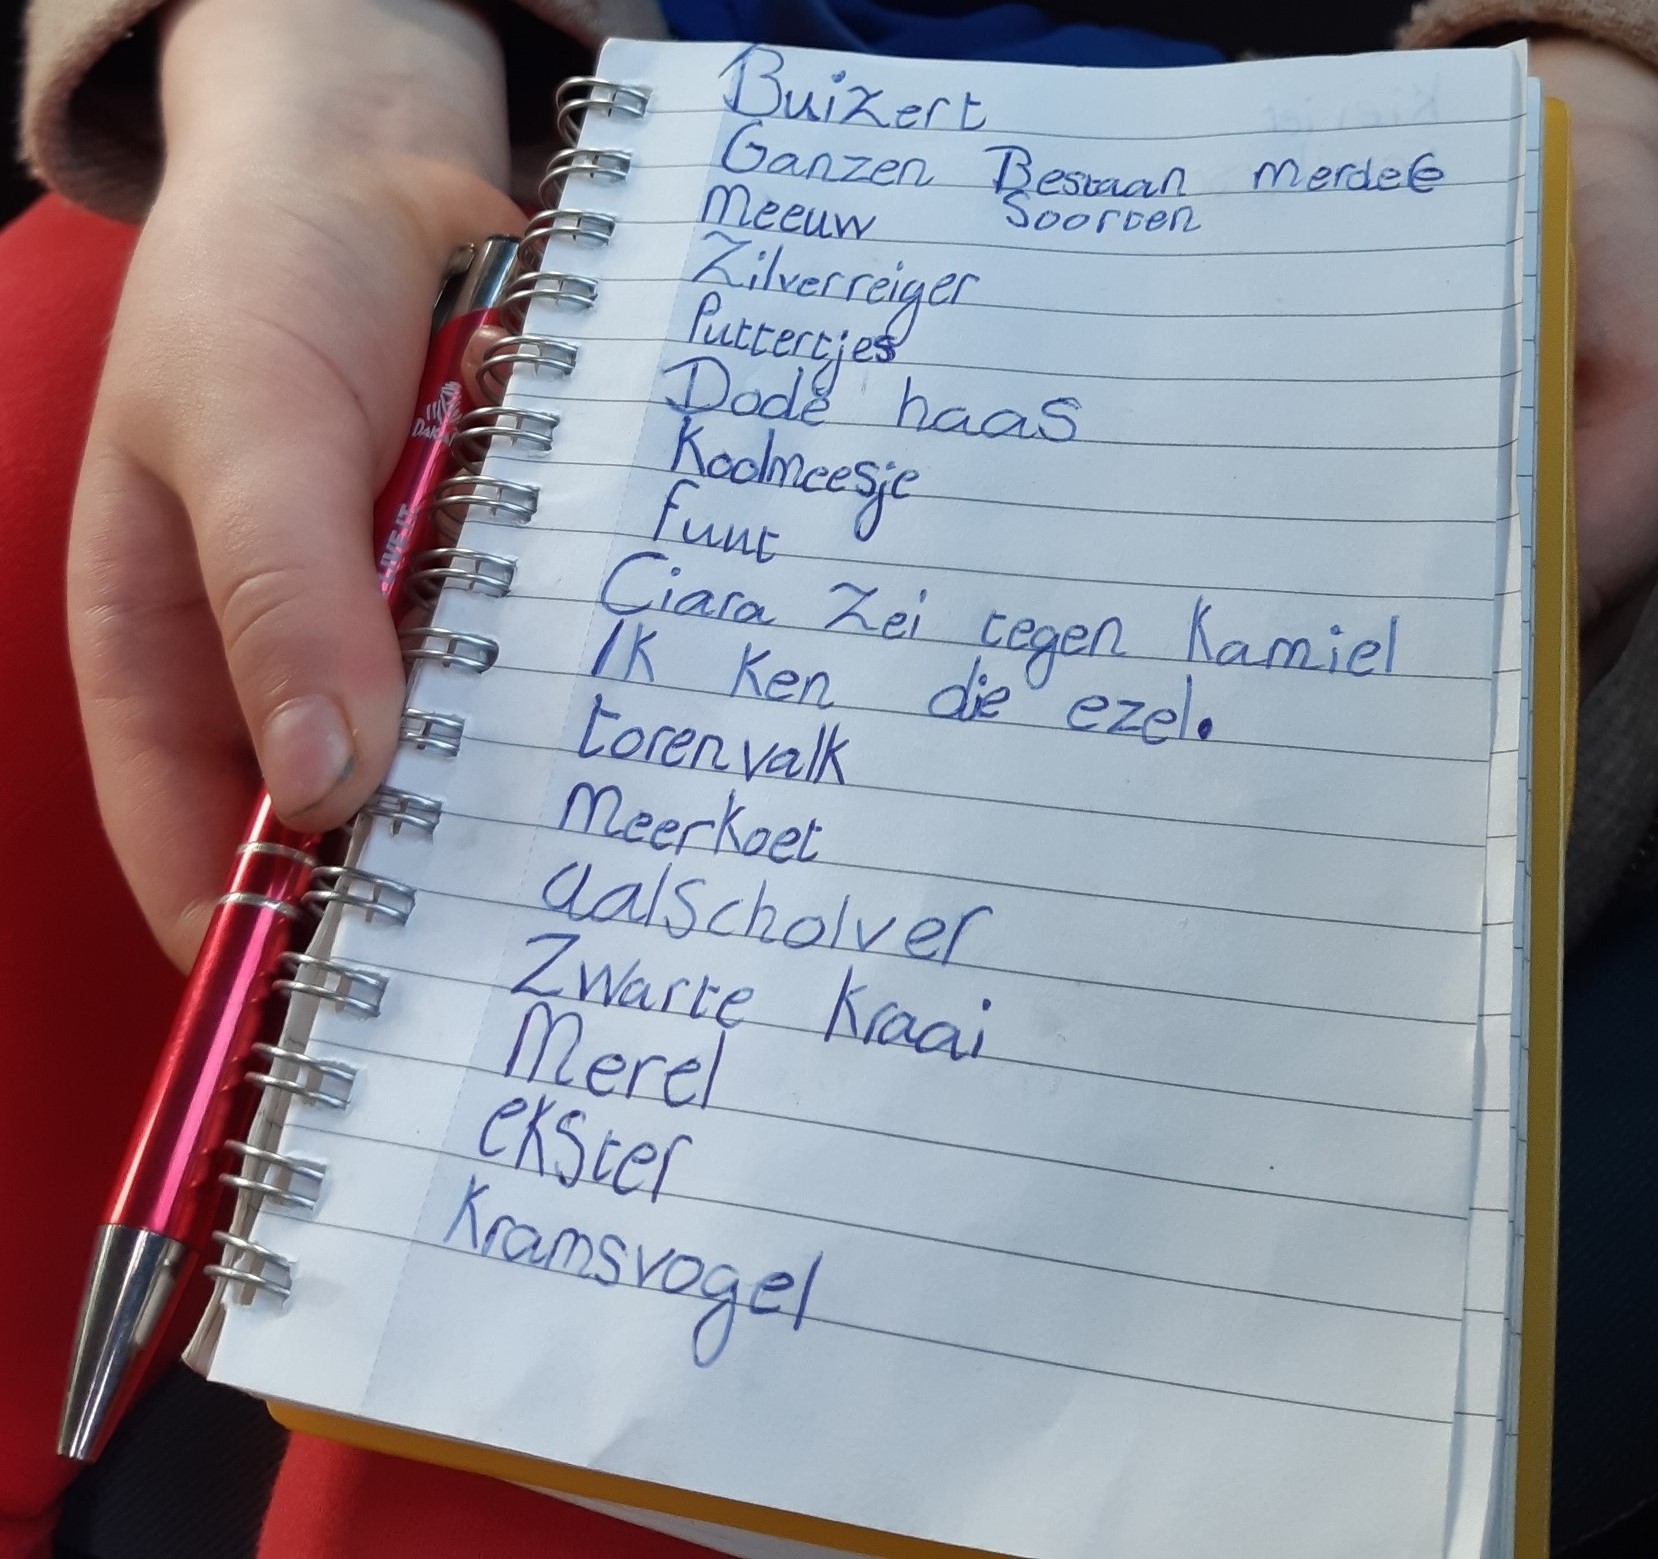 Buizert
Ganzen Bestaan merdee
Meeuw soorten
Zilverreiger
Puttertjes
Dode haas
Koolmeesje
fuut
Ciara zei tegen Kamiel
Ik ken die ezel.
torenvalk
Meerkoet
aalscholver
Zwarte kraai
Merel
ekster
Kramsvogel
LIVE IT